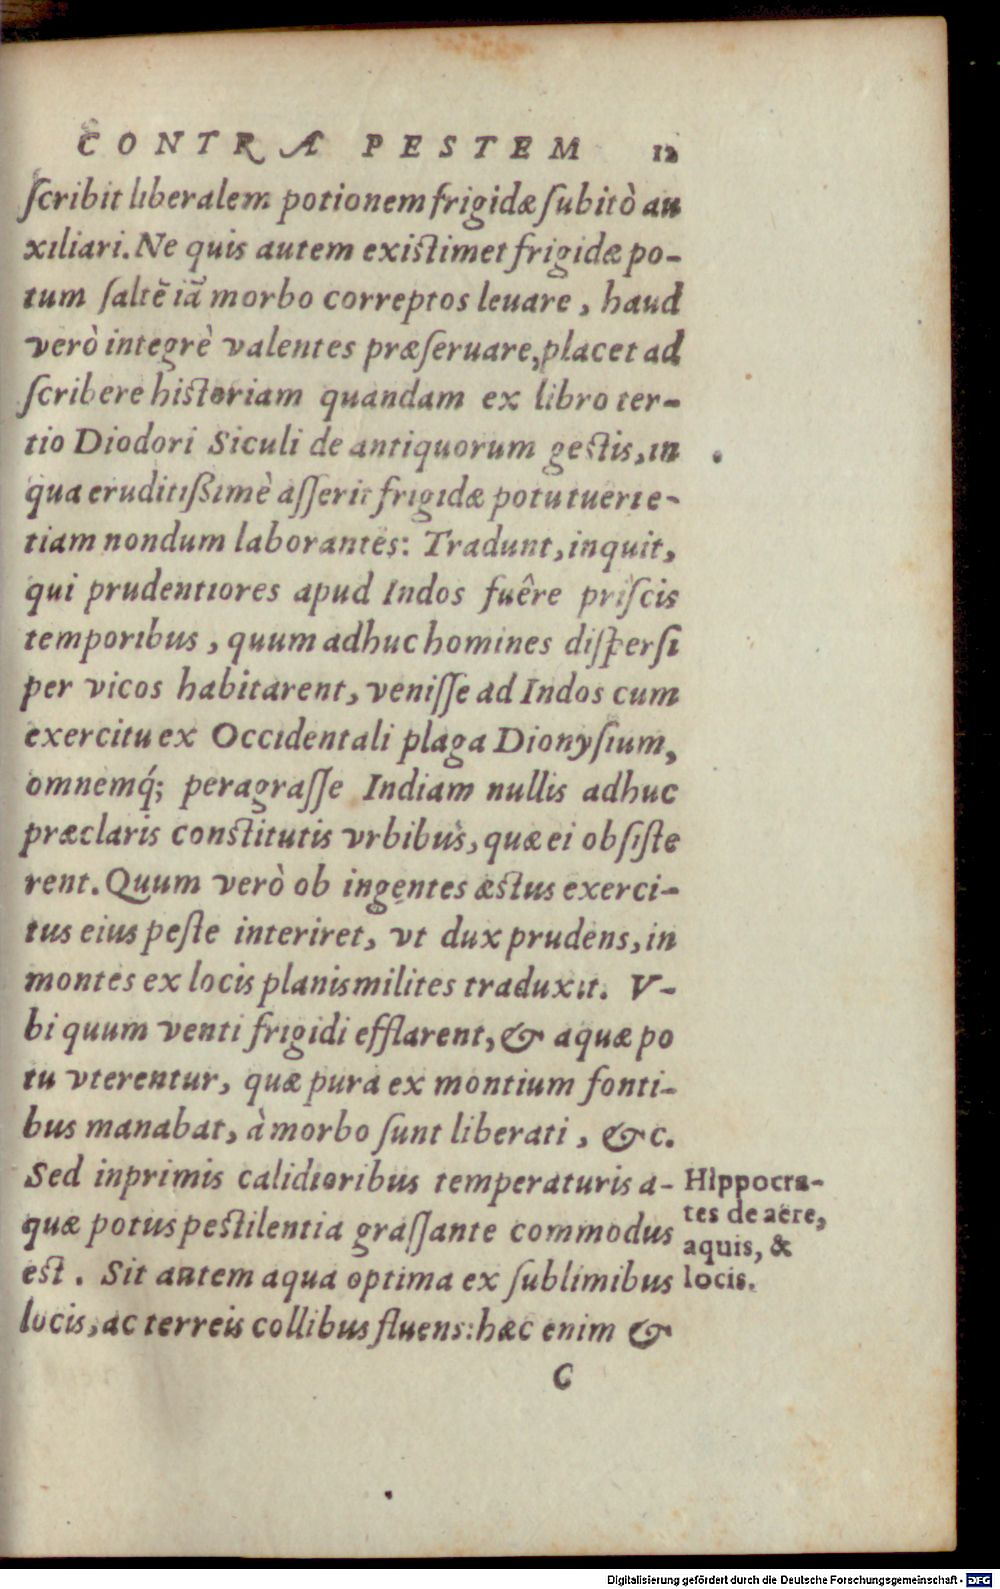 CONTRA PESTEM 12
ſcribit liberalem potionem frigidæ ſubitò au
xiliari. Ne quis autem existimet frigidæ po-
tum ſaltē iā morbo correptos leuare, haud
verò integrè valentes præſeruare, placet ad
ſcribere historiam quandam ex libro ter-
tio Diodori Siculi de antiquorum gestis, in
qua eruditißimè aſſerit frigidæ potu tueri e-
tiam nondum laborantes: Tradunt, inquit,
qui prudentiores apud Indos fuêre priſcis
temporibus, quum adhuc homines diſperſi
per vicos habitarent, veniſſe ad Indos cum
exercitu ex Occidentali plaga Dionyſium,
omnemq́; peragraſſe Indiam nullis adhuc
præclaris constitutis vrbibus, quæ ei obſiſte
rent. Quum verò ob ingentes æstus exerci-
tus eius peſte interiret, vt dux prudens, in
montes ex locis planis milites traduxit. V-
bi quum venti frigidi efflarent, & aquæ po
tu vterentur, quæ pura ex montium fonti-
bus manabat, à morbo ſunt liberati, &c.
Sed inprimis calidioribus temperaturis a-
quæ potus pestilentia graſſante commodus
est. Sit autem aqua optima ex ſublimibus
locis, ac terreis collibus fluens: hæc enim &
Hippocra-
tes de aëre,
aquis, &
locis.
C
Digitalisierung gefördert durch die Deutsche Forschungsgemeinschaft - DFG